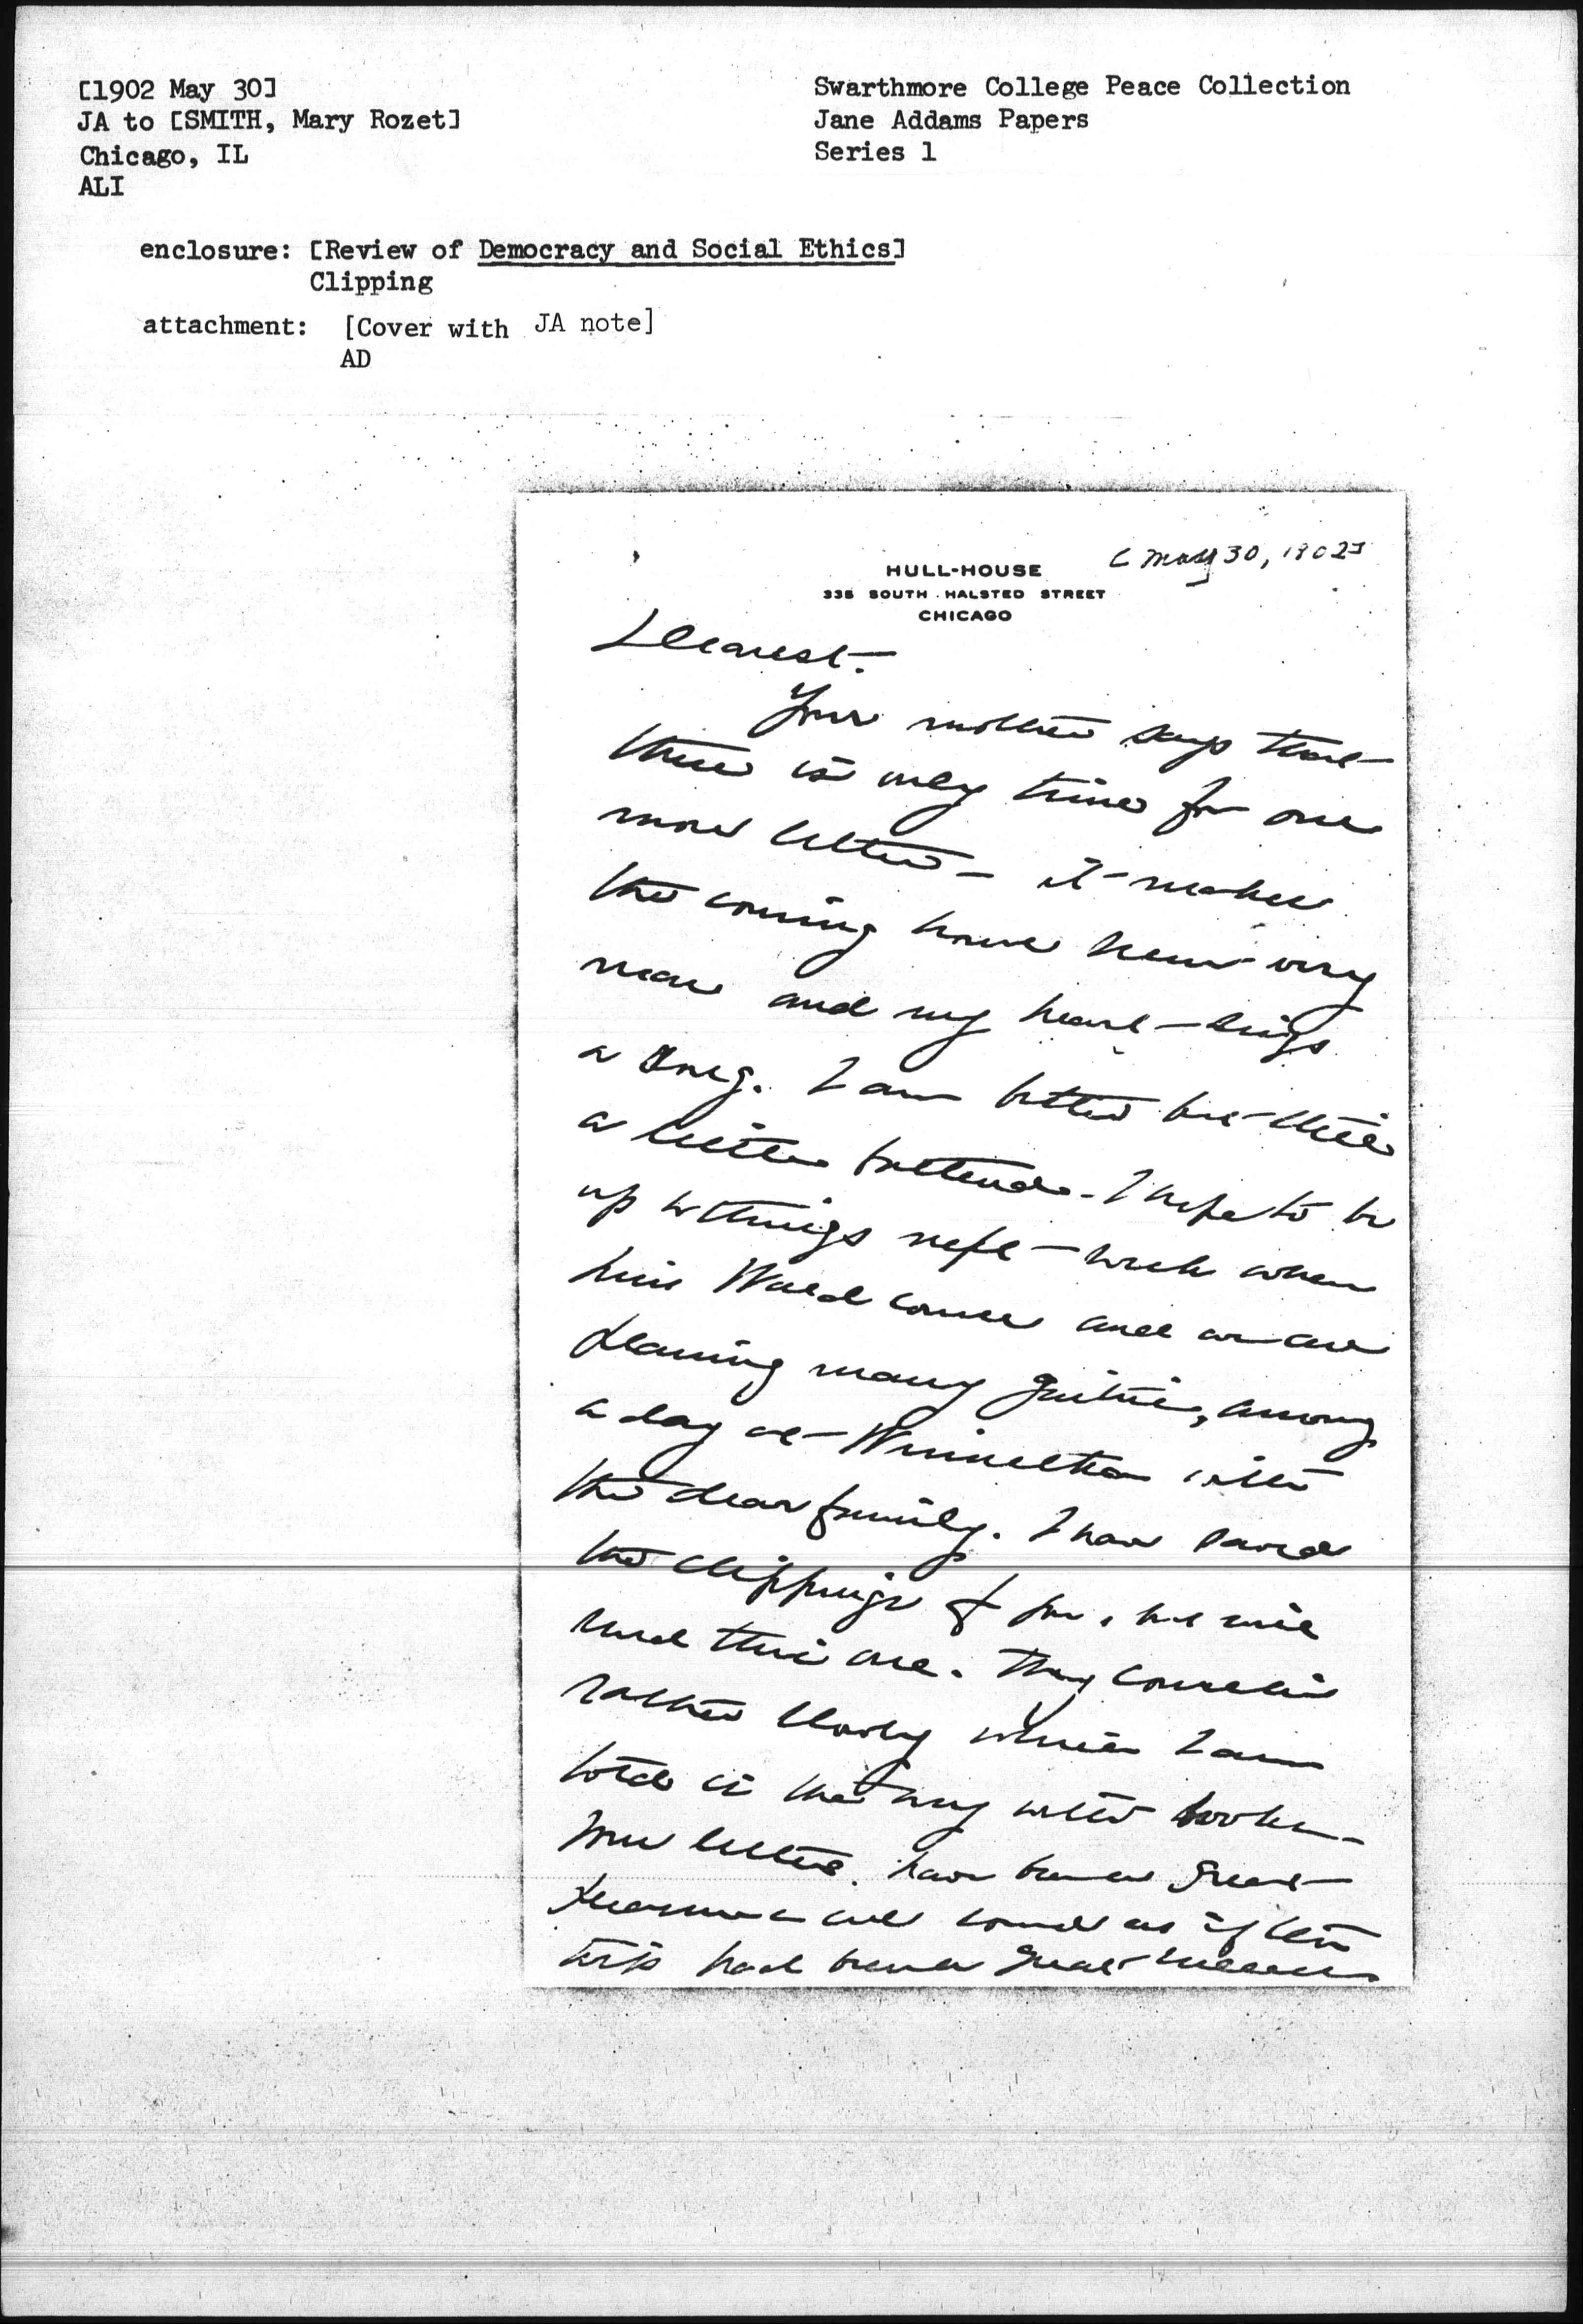 [1902 May 30]
JA to [SMITH, Mary Rozet]
Chicago, IL
ALI
Swarthmore College Peace Collection
Jane Addams Papers
Series 1
enclosure: [Review of Democracy and Social Ethics]
Clipping
attachment: [Cover with JA note]
AD
[May 30, 1902]
HULL-HOUSE
335 SOUTH HALSTED STREET
CHICAGO
Dearest -
Your mother says that
there is only time for one
more letter - it makes
the coming home seem very
near and my heart sings
a song. I am better but still
a little
I hope to be
up to things next week when
Miss Wald comes and we are
planning many gaieties, among
a day at Winnetka with
the dear family. I have saved
the clippings for you, but will
send this one. They come in
rather slowly which I am
told is the way with books -
Your letters have been a great
pleasure and sound as if the
trip had been a great success